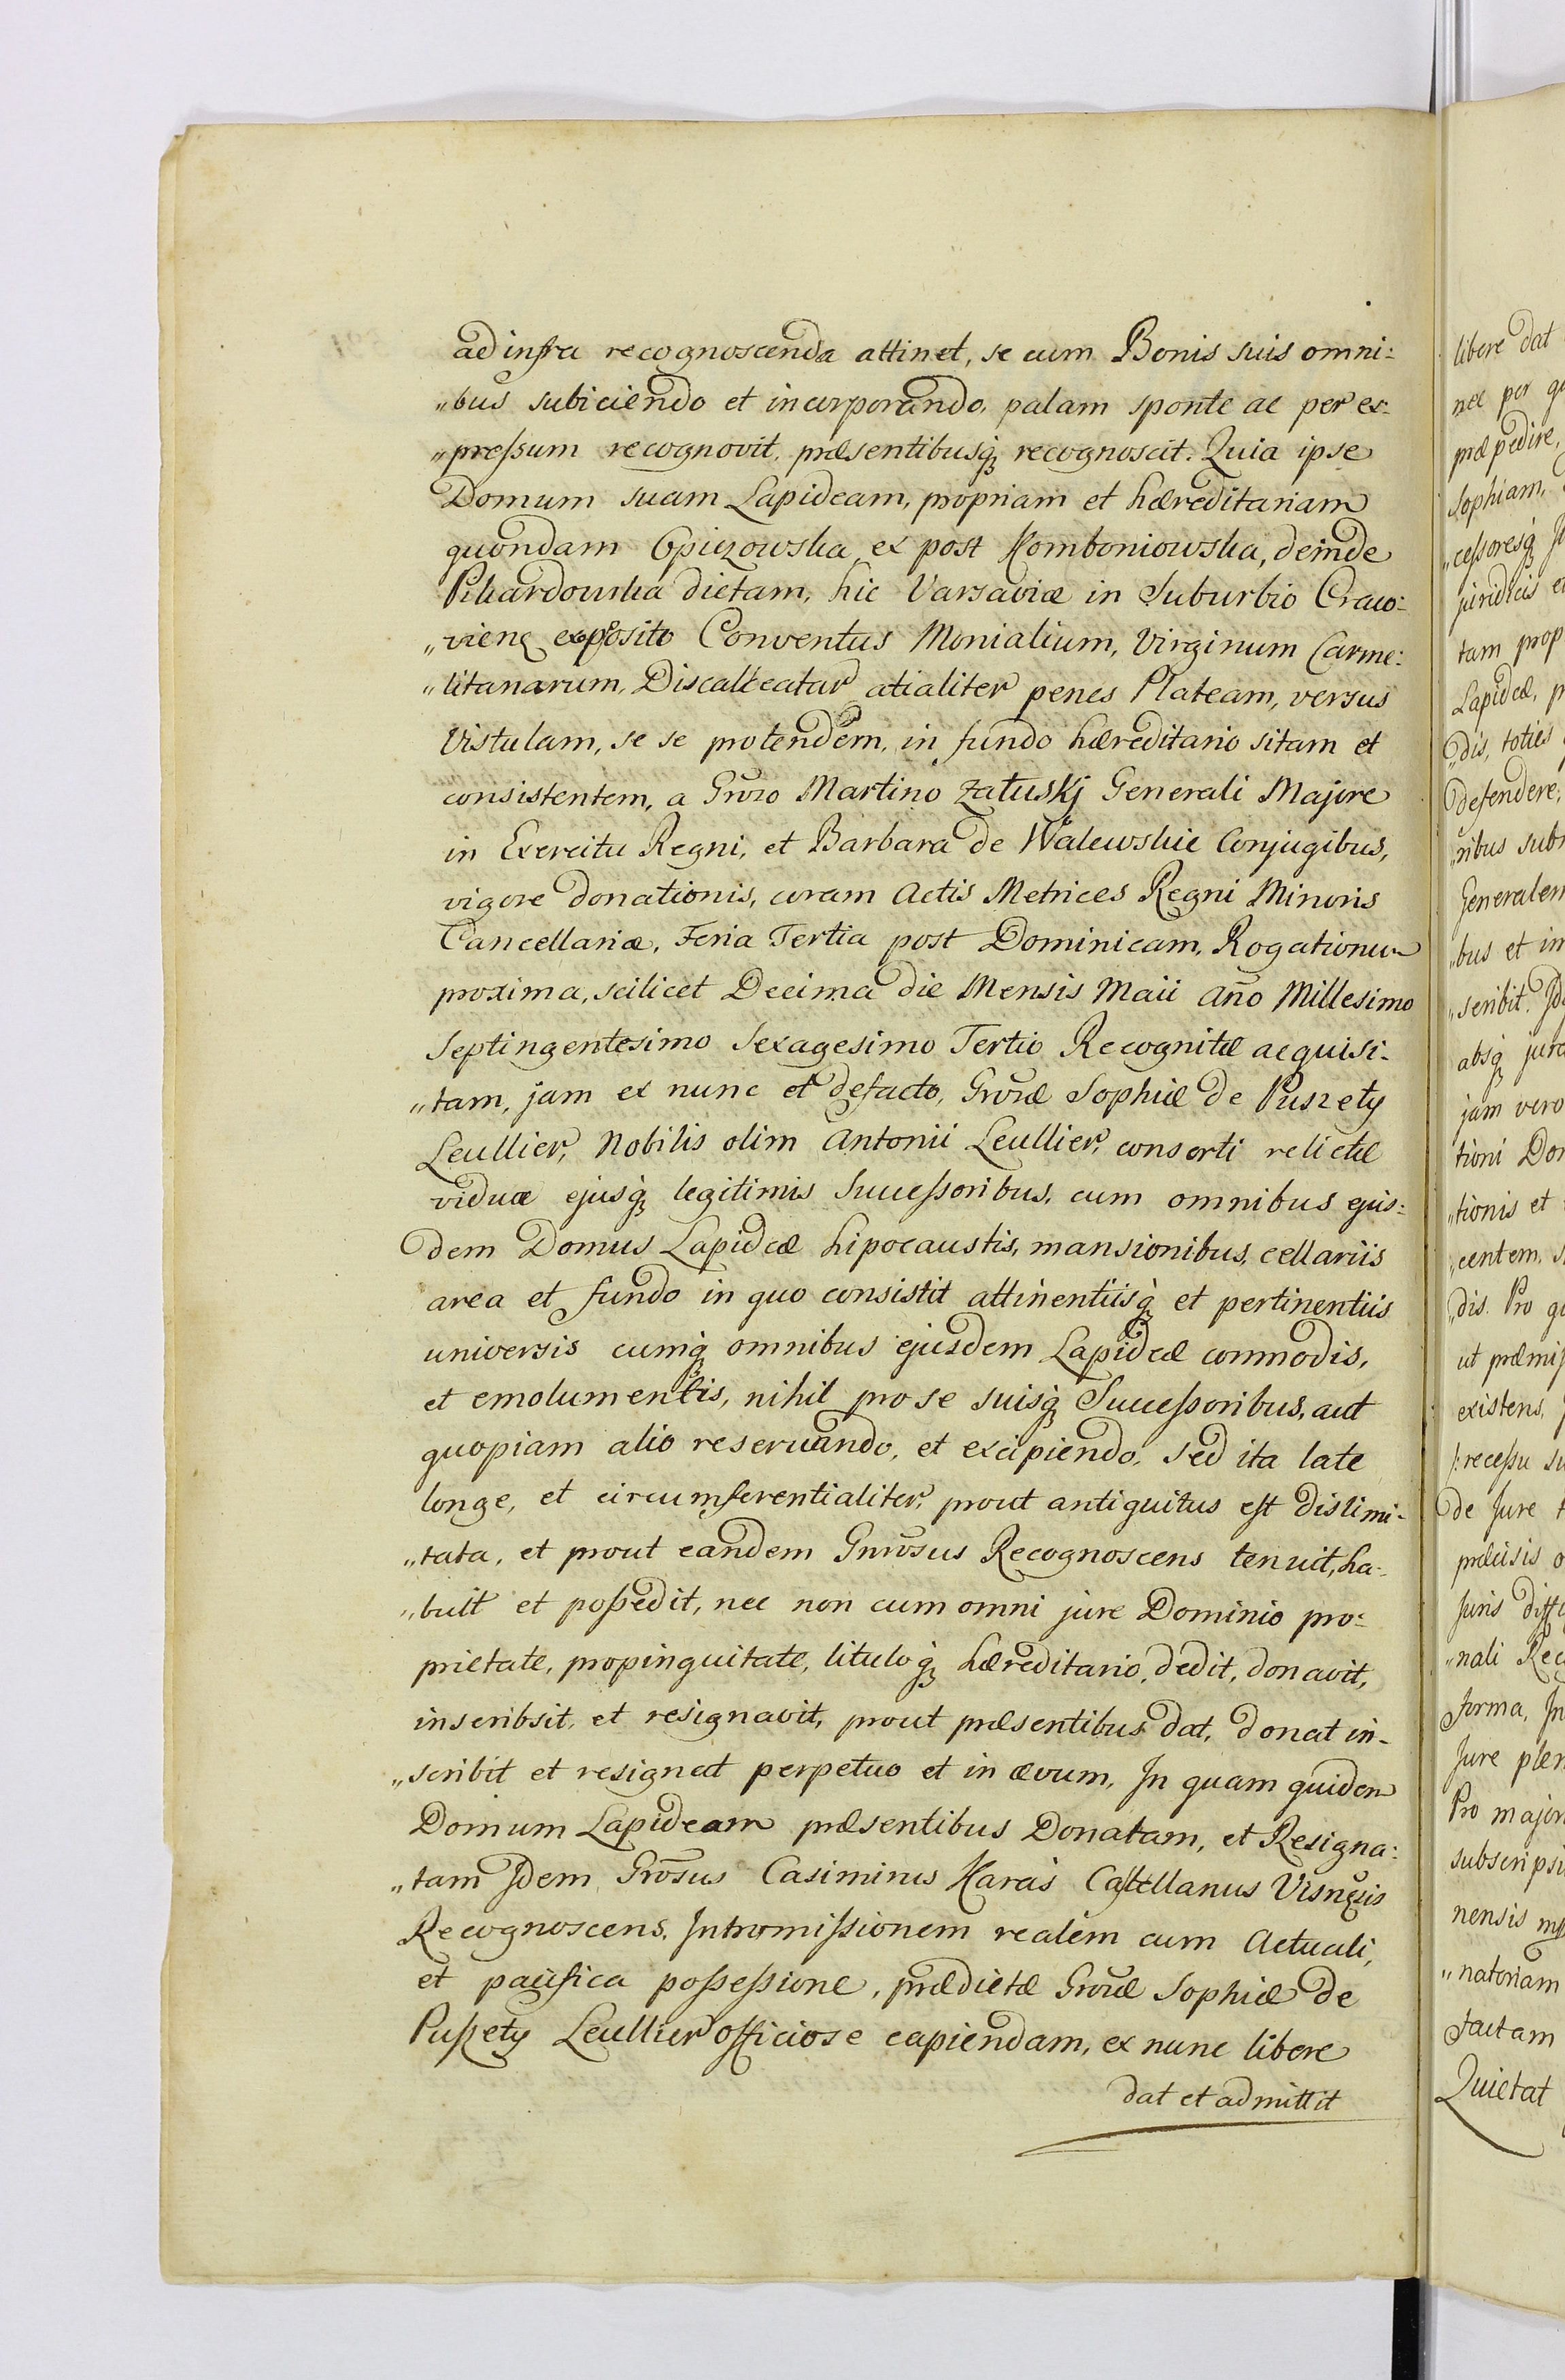 ad infra recognoscenda attinet, se cum Bonis suis omni:
„bus subiciendo et incorporando, palam sponte ac per ex:
„preſsum recognovit, præsentibusq; recognoscit. Quia ipse
Domum suam Lapideam, propriam et hæreditariam
quondam Opiczowska ex post Homboniowska, deinde
Pikardowska dictam, hic Varsaviæ in Suburbio Craco:
„vienȩ exposito Conventus Monialium, Virginum Carme:
„litanarum, Discalceatar atialiter penes Plateam, versus
Vistulam, se se protendem, in fundo hæreditario sitam et
consistentem, a Gnrŏ Martino Załuskj Generali Majore
in Exercitu Regni, et Barbara de Walewskie Conjugibus,
vigore donationis, coram Actis Metrices Regni Minoris
Cancellariæ, Feria Tertia post Dominicam, Rogationum
proxima, scilicet Decima die Mensis Maii Año Millesimo
Septingentesimo Sexagesimo Tertio Recognitæ acquisi:
„tam, jam ex nunc et defacto, Gnrŏæ Sophiæ de Puszety
Leullier, Nobilis olim Antonii Leullier, consorti relictæ
viduæ ejusq; legitimis Succeſsoribus, cum omnibus ejus:
dem Domus Lapideæ hipocaustis, mansionibus, cellariis
area et fundo in quo consistit attinentiisq; et pertinentiis
universis cumq; omnibus ejusdem Lapideæ commodis,
et emolumentis, nihil pro se suisq; Succeſsoribus, aut
quopiam alio reservando, et excipiendo, sed ita late
longe, et circumferentialiter, prout antiquitus eſt dislimi:
„tata, et prout eandem Gnrŏsus Recognoscens tenuit, ha:
„buit et poſsedit, nec non cum omni jure Dominio pro:
prietate, propinquitate, tituloq; hæreditario, dedit, donavit,
inscribsit, et resignavit, prout præsentibus dat, donat in:
„scribit et resignat perpetuo et in ævum, In quam quidem
Domum Lapideam præsentibus Donatam, et Resigna:
„tam Idem Grŏsus Casimirus Karaś Caſtellanus Visnȩsis
Recognoscens, Intromiſsionem realem cum Actuali,
et pacifica poſseſsione, prædictæ Grŏæ Sophiæ de
Puſzety Leullier officiose capiendam, ex nunc libere
dat et admittit
libere dat
nec per
præpedire,
Sophiam,
„ceſsoresq;
juridicis et
tam prop
Lapideæ, p
„dis, toties
defendere,
„ribus sub
Generalem
„bus et in
„scribit. Id
absq; jura
jam vero
tioni Do
„tionis et
„centem,
„dis. Pro
ut præmiſ
existens,
receſsu su
de Jure
præcisis
Juris diffi
„nali Rec
forma, In
Jure plen
Pro major
subscripsi
nensis
„natoriam
factam
Quietat